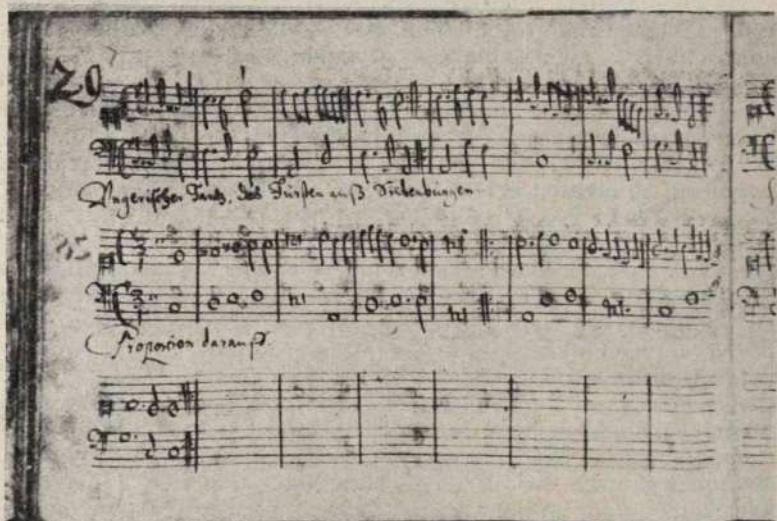 20
Ungerischer Tantz, des Fürsten auß Siebenbürgen
Proportion darauff.